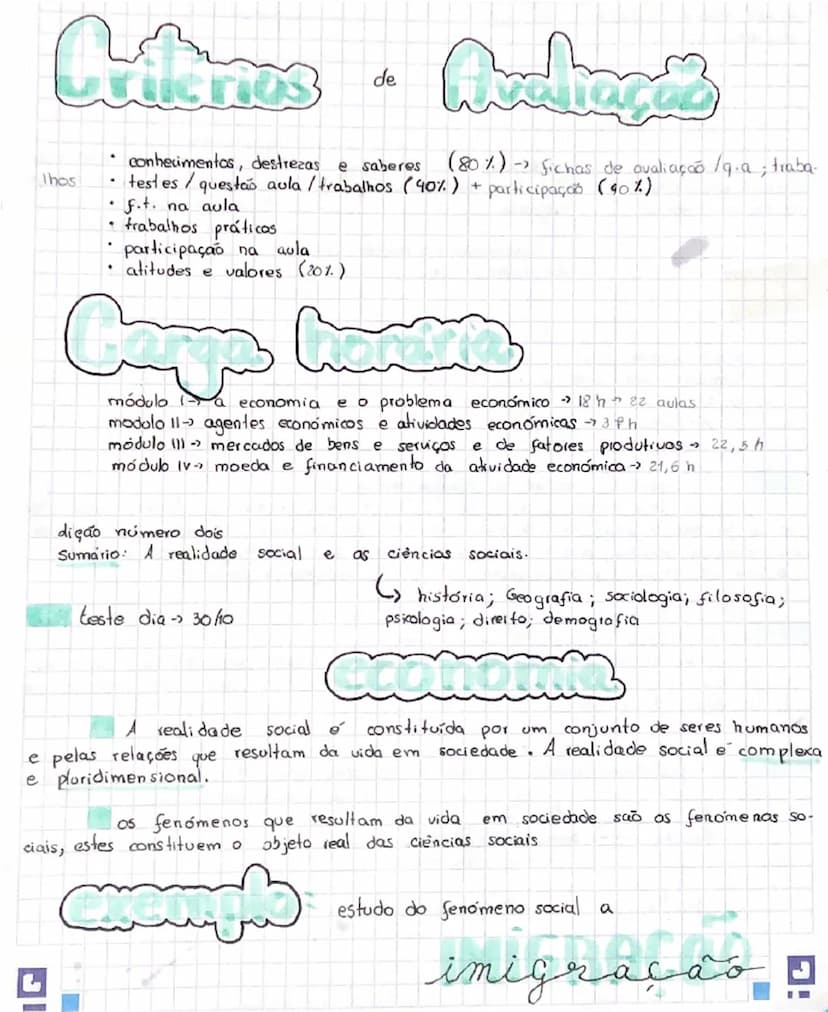 Critérios de Avaliação
• conhecimentos, destrezas e saberes (80%) -> fichas de avaliação / q.a ; traba-
lhos
• testes / questão aula / trabalhos (40%) + participação (40%)
• f.t. na aula
• trabalhos práticos
• participação na aula
• atitudes e valores (20%)
Carga horária
módulo I -> a economia e o problema económico -> 18 h -> 22 aulas
modulo II -> agentes económicos e atividades económicas ->
módulo III -> mercados de bens e serviços e de fatores produtivos -> 22,5 h
módulo IV -> moeda e financiamento da atividade económica -> 21,6 h
número dois
Sumário: A realidade social e as ciências sociais.
↳ história; Geografia; sociologia; filosofia;
teste dia -> 30/10
psicologia; direito; demografia
economia
A realidade social é constituída por um conjunto de seres humanos
e pelas relações que resultam da vida em sociedade. A realidade social é complexa
e pluridimensional.
os fenómenos que resultam da vida em sociedade são os fenómenos so-
ciais, estes constituem o objeto real das ciências sociais
exemplo: estudo do fenómeno social a
IMIGRAÇÃO
imigração